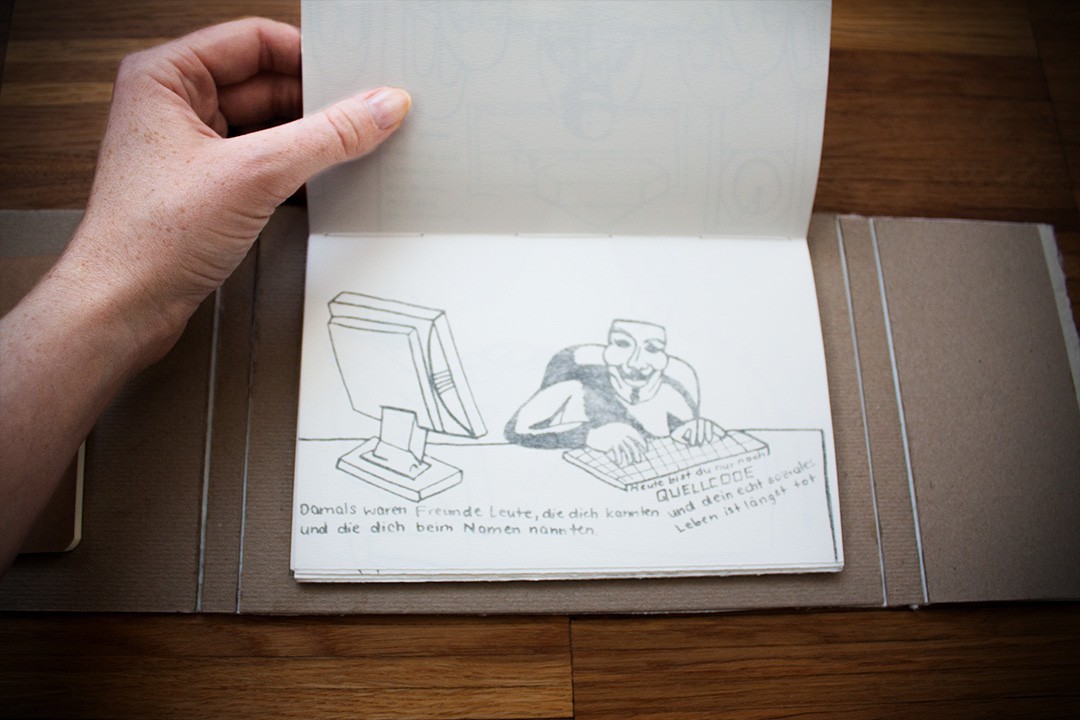 Damals waren Freunde Leute, die dich kannten
und die dich beim Namen nannten.
Heute bist du nur noch
QUELLCODE
und dein echt soziales
Leben ist längst tot